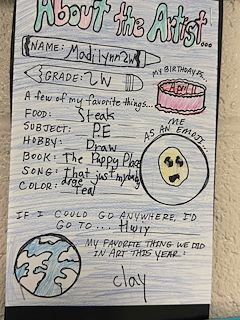 About the Artist...
NAME: Madilynn 2W
GRADE: 2W
MY BIRTHDAY IS..
April 11
A few of my favorite things...
FOOD: Steak
SUBJECT: PE
HOBBY: Draw
BOOK: The Puppy Place
SONG: That just my baby
doge
COLOR: Teal
ME
AS AN EMOJI..
IF I COULD GO ANYWHERE, I'D
GO TO ... Hwiy
MY FAVORITE THING WE DID
IN ART THIS YEAR:
clay